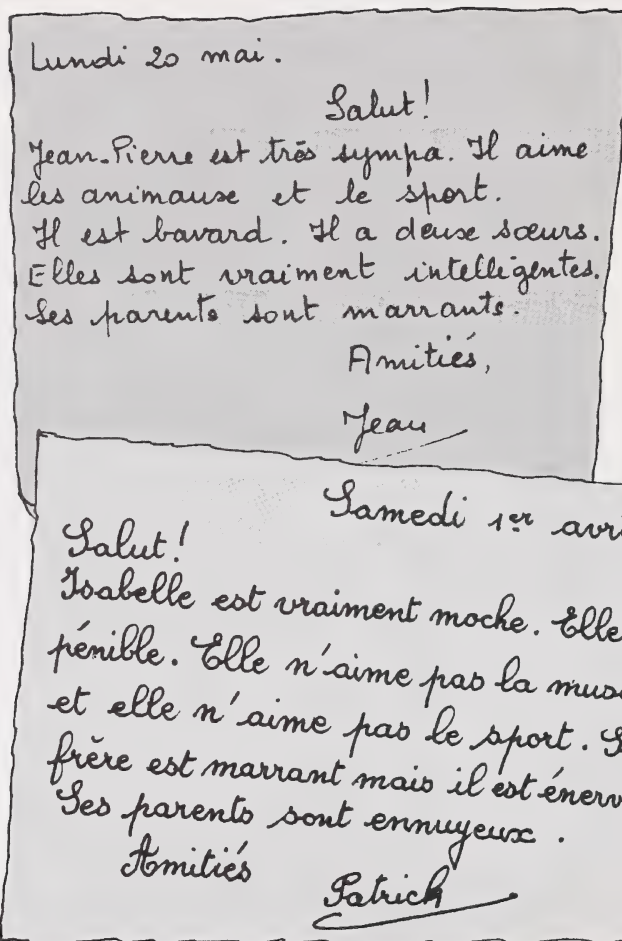 Lundi 20 mai.
Salut!
Jean-Pierre est très sympa. Il aime
les animaux et le sport.
Il est bavard. Il a deux sœurs.
Elles sont vraiment intelligentes.
Ses parents sont marrants.
Amitiés,
Jean
Samedi 1er avri
Salut!
Isabelle est vraiment moche. Elle
pénible. Elle n'aime pas la mus
et elle n'aime pas le sport. S
frère est marrant mais il est énerv
Ses parents sont ennuyeux.
Amitiés
Patrick